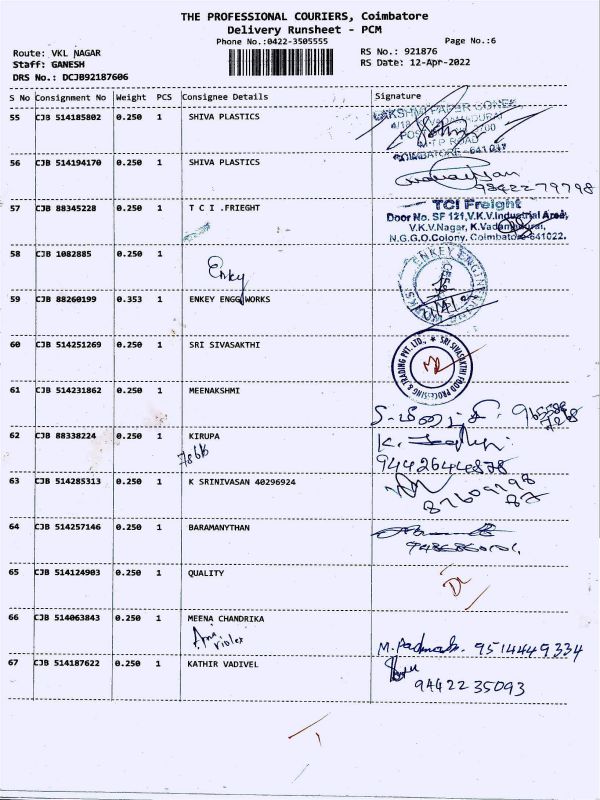 THE PROFESSIONAL COURIERS, Coimbatore
Delivery Runsheet - PCM
Phone No.:0422-3505555 Page No.:6
Route: VKL NAGAR RS No.: 921876
Staff: GANESH RS Date: 12-Apr-2022
DRS No.: DCJB92187606
S No Consignment No Weight PCS Consignee Details Signature
55 CJB 514185802 0.250 1 SHIVA PLASTICS
LAKSHMI PAPER CONES
M.T.P ROAD
COIMBATORE - 641 047
56 CJB 514194170 0.250 1 SHIVA PLASTICS
9842279798
57 CJB 88345228 0.250 1 T C I .FRIEGHT
TCI Freight
Door No. SF 121,V.K.V.Industrial Area,
V.K.V.Nagar, K.Vadamadurai,
N.G.G.O.Colony, Coimbatore-641022.
58 CJB 1082885 0.250 1
Enky
ENKEY ENGINEERING WORKS
59 CJB 88260199 0.353 1 ENKEY ENGG WORKS
60 CJB 514251269 0.250 1 SRI SIVASAKTHI
SRI SIVASAKTHI FOOD PROCESSING & TRADING PVT. LTD.,
61 CJB 514231862 0.250 1 MEENAKSHMI
62 CJB 88338224 0.250 1 KIRUPA
7866
9442644878
63 CJB 514285313 0.250 1 K SRINIVASAN 40296924
64 CJB 514257146 0.250 1 BARAMANYTHAN
65 CJB 514124903 0.250 1 QUALITY
66 CJB 514063843 0.250 1 MEENA CHANDRIKA
M. Padmak. 9514449334
67 CJB 514187622 0.250 1 KATHIR VADIVEL
9442235093